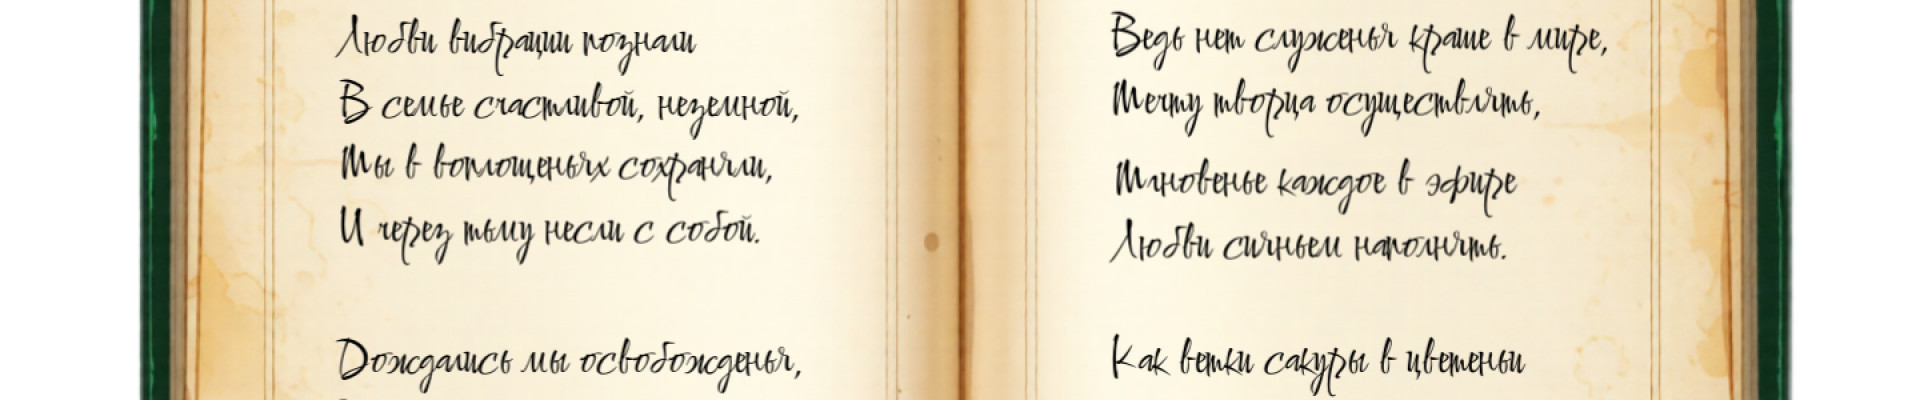 Любви вибрации познали
В семье счастливой, неземной,
Мы в воплощеньях сохраняли,
И через тьму несли с собой.
Дождались мы освобожденья,
Ведь нет служенья краше в мире,
Мечту творца осуществлять,
Мгновенье каждое в эфире
Любви сияньем наполнять.
Как ветки сакуры в цветеньи